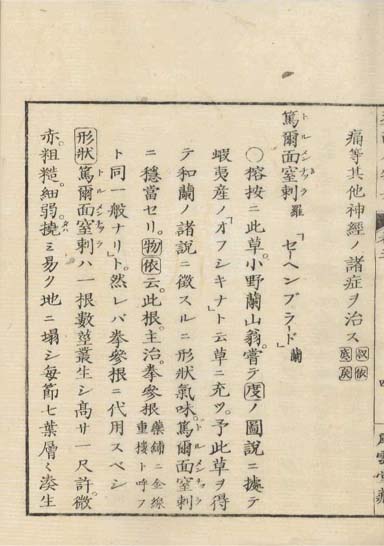 痛等其他神經ノ諸症ヲ治ス
篤爾面窒刺 羅 「セーヘンブラード」 蘭
トルメンチラ
〇榕按ニ此草。小野蘭山翁。嘗テ度ノ圖説ニ據テ
蝦夷産ノ「オフシキナ」ト云草ニ充ツ。予此草ヲ得
テ和蘭ノ諸説ニ徴スルニ形狀氣味。篤爾面窒刺
トルメンチラ
ニ穩當セリ。物依云。此根。主治。拳參根 藥鋪ニ全線重樓ト呼フ
ト同一般ナリト。然レバ拳參根ニ代用スベシ
形狀 篤爾面窒刺ハ一根數莖叢生シ高サ一尺許微
トルメンチラ
赤。粗糙。細弱。撓ミ易ク地ニ塌シ毎節七葉層々湊生